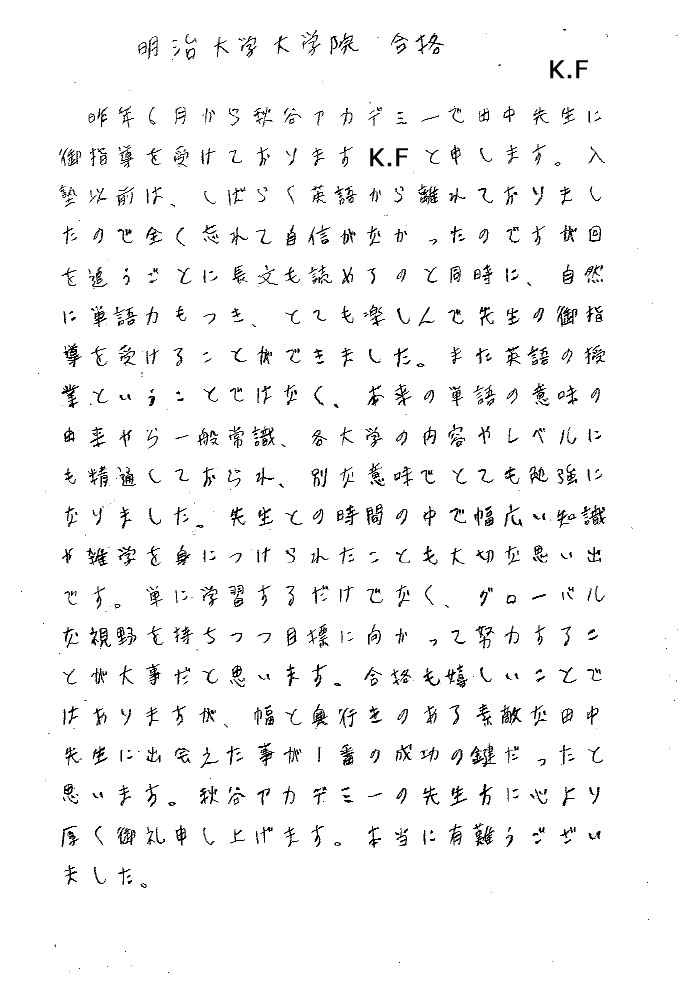 明治大学大学院 合格
K.F
昨年6月から秋谷アカデミーで田中先生に
御指導を受けております K.F と申します。入
塾以前は、しばらく英語から離れておりまし
たので全く忘れて自信がなかったのですが回
を追うごとに長文も読めるのと同時に、自然
に単語力もつき、とても楽しんで先生の御指
導を受けることができました。また英語の授
業ということではなく、本来の単語の意味の
由来やら一般常識、各大学の内容やレベルに
も精通しておられ、別な意味でとても勉強に
なりました。先生との時間の中で幅広い知識
や雑学を身につけられたことも大切な思い出
です。単に学習するだけでなく、グローバル
な視野を持ちつつ目標に向かって努力するこ
とが大事だと思います。合格も嬉しいことで
はありますが、幅と奥行きのある素敵な田中
先生に出会えた事が1番の成功の鍵だったと
思います。秋谷アカデミーの先生方に心より
厚く御礼申し上げます。本当に有難うござい
ました。